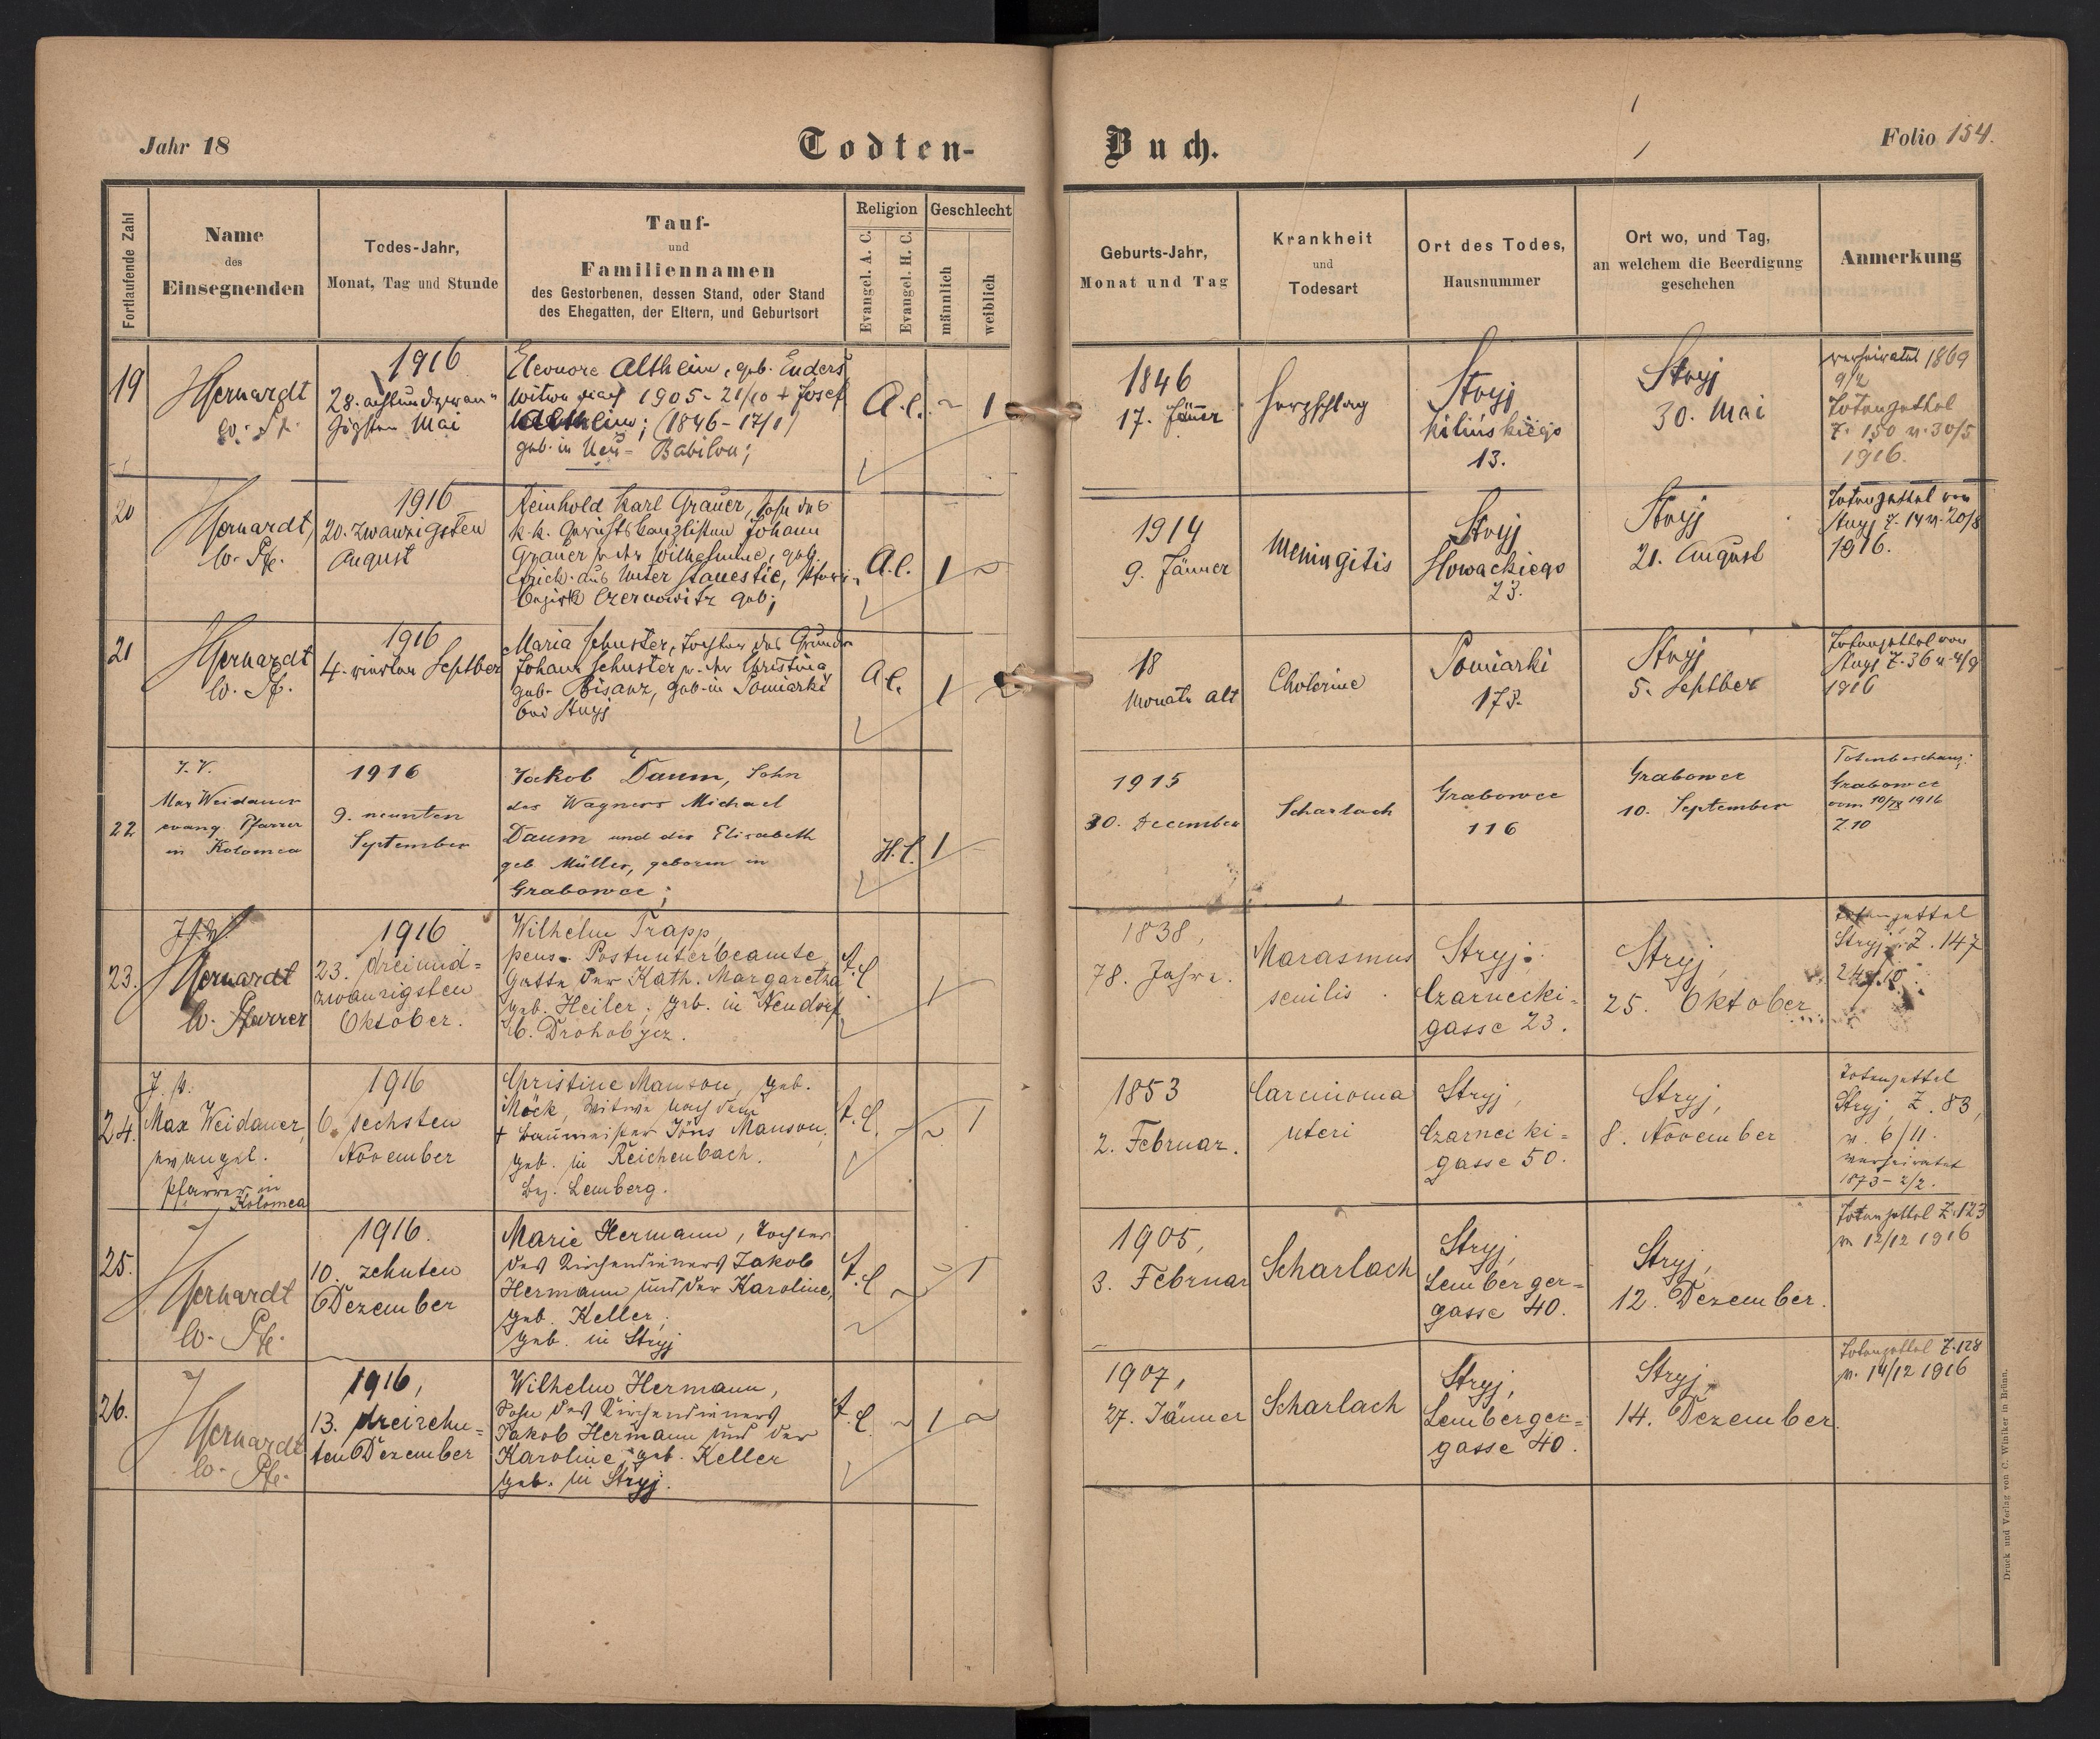 Jahr 18
Todten-
Buch.
Folio 154.
Fortlaufende Zahl
Name
des
Einsegnenden
Todes-Jahr,
Monat, Tag und Stunde
Tauf-
und
Familiennamen
des Gestorbenen, dessen Stand, oder Stand
des Ehegatten, der Eltern, und Geburtsort
Religion
Evangel. A. C.
Evangel. H. C.
Geschlecht
männlich
weiblich
Geburts-Jahr,
Monat und Tag
Krankheit
und
Todesart
Ort des Todes,
Hausnummer
Ort wo, und Tag,
an welchem die Beerdigung
geschehen
Anmerkung
19
1916
28. achtundzwan-
zigsten Mai
Eleonore Altheim, geb. Enders
Witwe nach 1905 - 21/10 + Josef
Altheim; (1846 - 17/1)
geb. in Neu-Babilon;
A.C. ~ 1
1846
17. Jänner
Herzschlag
Stryj
Kilińskiego
13.
Stryj
30. Mai
verheiratet 1869
Totenzettel
Z. 150 v. 30/5
1916.
20
1916
20. zwanzigsten
August
Reinhold Karl Grauer, Sohn des
k.k. Gerichtskanzlisten Johann
Grauer u. der Wilhelmine, geb.
aus Unter Stanestie,
Bezirk Czernowitz geb;
A.C. 1 ~
1914
9. Jänner
Meningitis
Stryj
Slowackiego
23.
Stryj
21. August
Totenzettel von
Stryj Z. 14 v. 20/8
1916.
21
1916
4. vierten Septber
Maria Schuster, Tochter des
Johann Schuster u. der Christina
geb. Bisanz, geb. in Pomiarki
bei Stryj
A.C. 1
18
Monate alt
Cholerine
Pomiarki
173.
Stryj
5. Septber
Totenzettel von
Stryj Z. 36 v. 4/9
1916
22
J. V.
Max Weidauer
evang. Pfarrer
in Kolomea
1916
9. neunten
September
Jakob Daum, Sohn
des Wagners Michael
Daum und der Elisabeth
geb. Müller, geboren in
Grabowce;
H.C. 1
1915
30. December
Scharlach
Grabowce
116
Grabowce
10. September
Totenbeschau:
Grabowce
vom 10/IX 1916
Z 10
23.
Pfarrer
1916
23. dreiund-
zwanzigsten
Oktober.
Wilhelm Trapp,
pens. Postunterbeamte,
Gatte der Kath. Margaretha
geb. Heiler; geb. in Neudorf
b. Drohobycz.
A.C. 1
1838,
78. Jahre.
Marasmus
senilis
Stryj,
Czarnecki-
gasse 23.
Stryj,
25. Oktober
Totenzettel
Stryj, Z. 147
24/10.
24.
Max Weidauer,
evangel.
Pfarrer in
Kolomea
1916
6. sechsten
November
Christine Manson, geb.
Möck, Witwe nach dem
+ Baumeister Jöns Manson,
geb. in Reichenbach.
Bez. Lemberg.
A.C. ~ 1
1853
2. Februar.
Carcinoma
uteri
Stryj,
Czarnecki-
gasse 50.
Stryj,
8. November
Totenzettel
Stryj, Z. 83,
v. 6/11.
verheiratet
1873 - 2/2.
25.
1916.
10. zehnten
Dezember
Marie Hermann, Tochter
des Kirchendieners Jakob
Hermann und der Karoline,
geb. Keller,
geb. in Stryj
A.C. ~ 1
1905,
3. Februar
Scharlach
Stryj,
Lemberger-
gasse 40.
Stryj,
12. Dezember.
Totenzettel Z. 123
v. 12/12 1916
26.
1916,
13. dreizehn-
ten Dezember
Wilhelm Hermann,
Sohn des Kirchendieners
Jakob Hermann und der
Karoline, geb. Keller
geb. in Stryj.
A.C. ~ 1 ~
1907,
27. Jänner
Scharlach
Stryj,
Lemberger-
gasse 40.
Stryj,
14. Dezember.
Totenzettel Z. 128
v. 14/12 1916
Druck und Verlag von C. Winiker in Brünn.